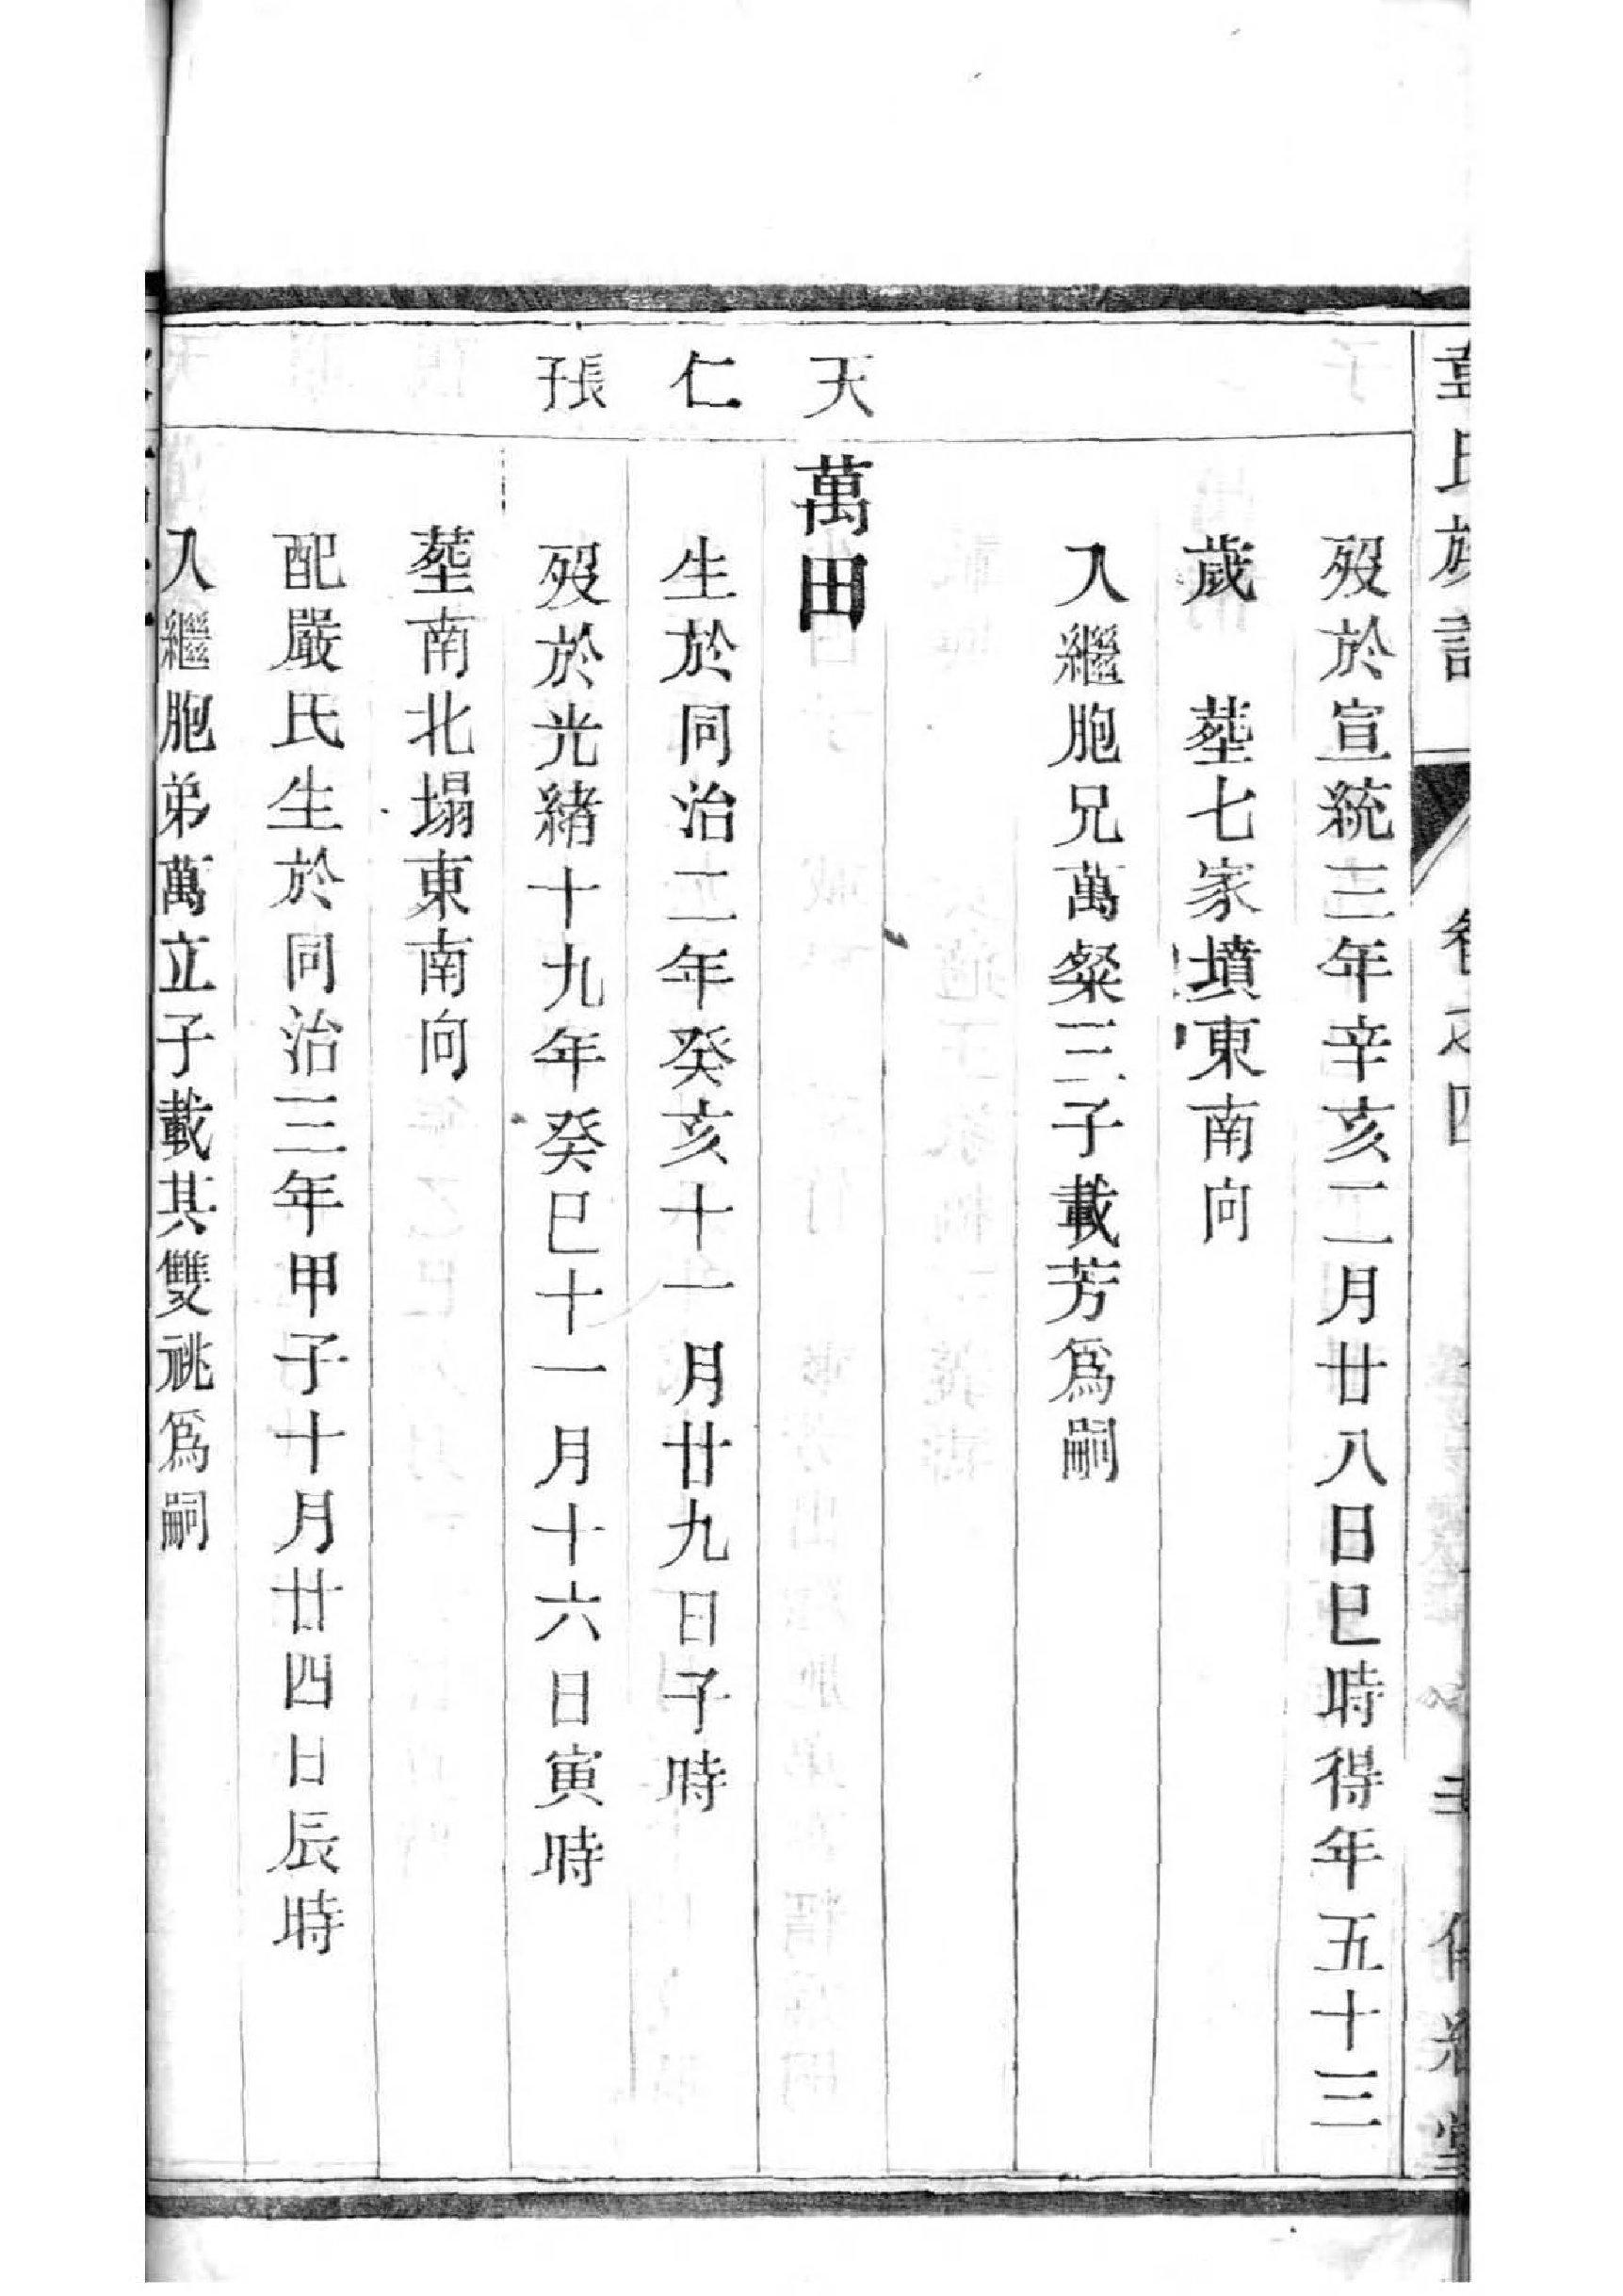 氏族譜 卷之四
歿於宣統三年辛亥二月廿八日巳時得年五十三
歲 塟七家墳東南向
入繼胞兄萬粲三子載芳爲嗣
天仁長子
萬田
生於同治二年癸亥十一月廿九日子時
歿於光緒十九年癸巳十一月十六日寅時
塟南北塌東南向
配嚴氏生於同治三年甲子十月廿四日辰時
入繼胞弟萬立子載其雙祧爲嗣